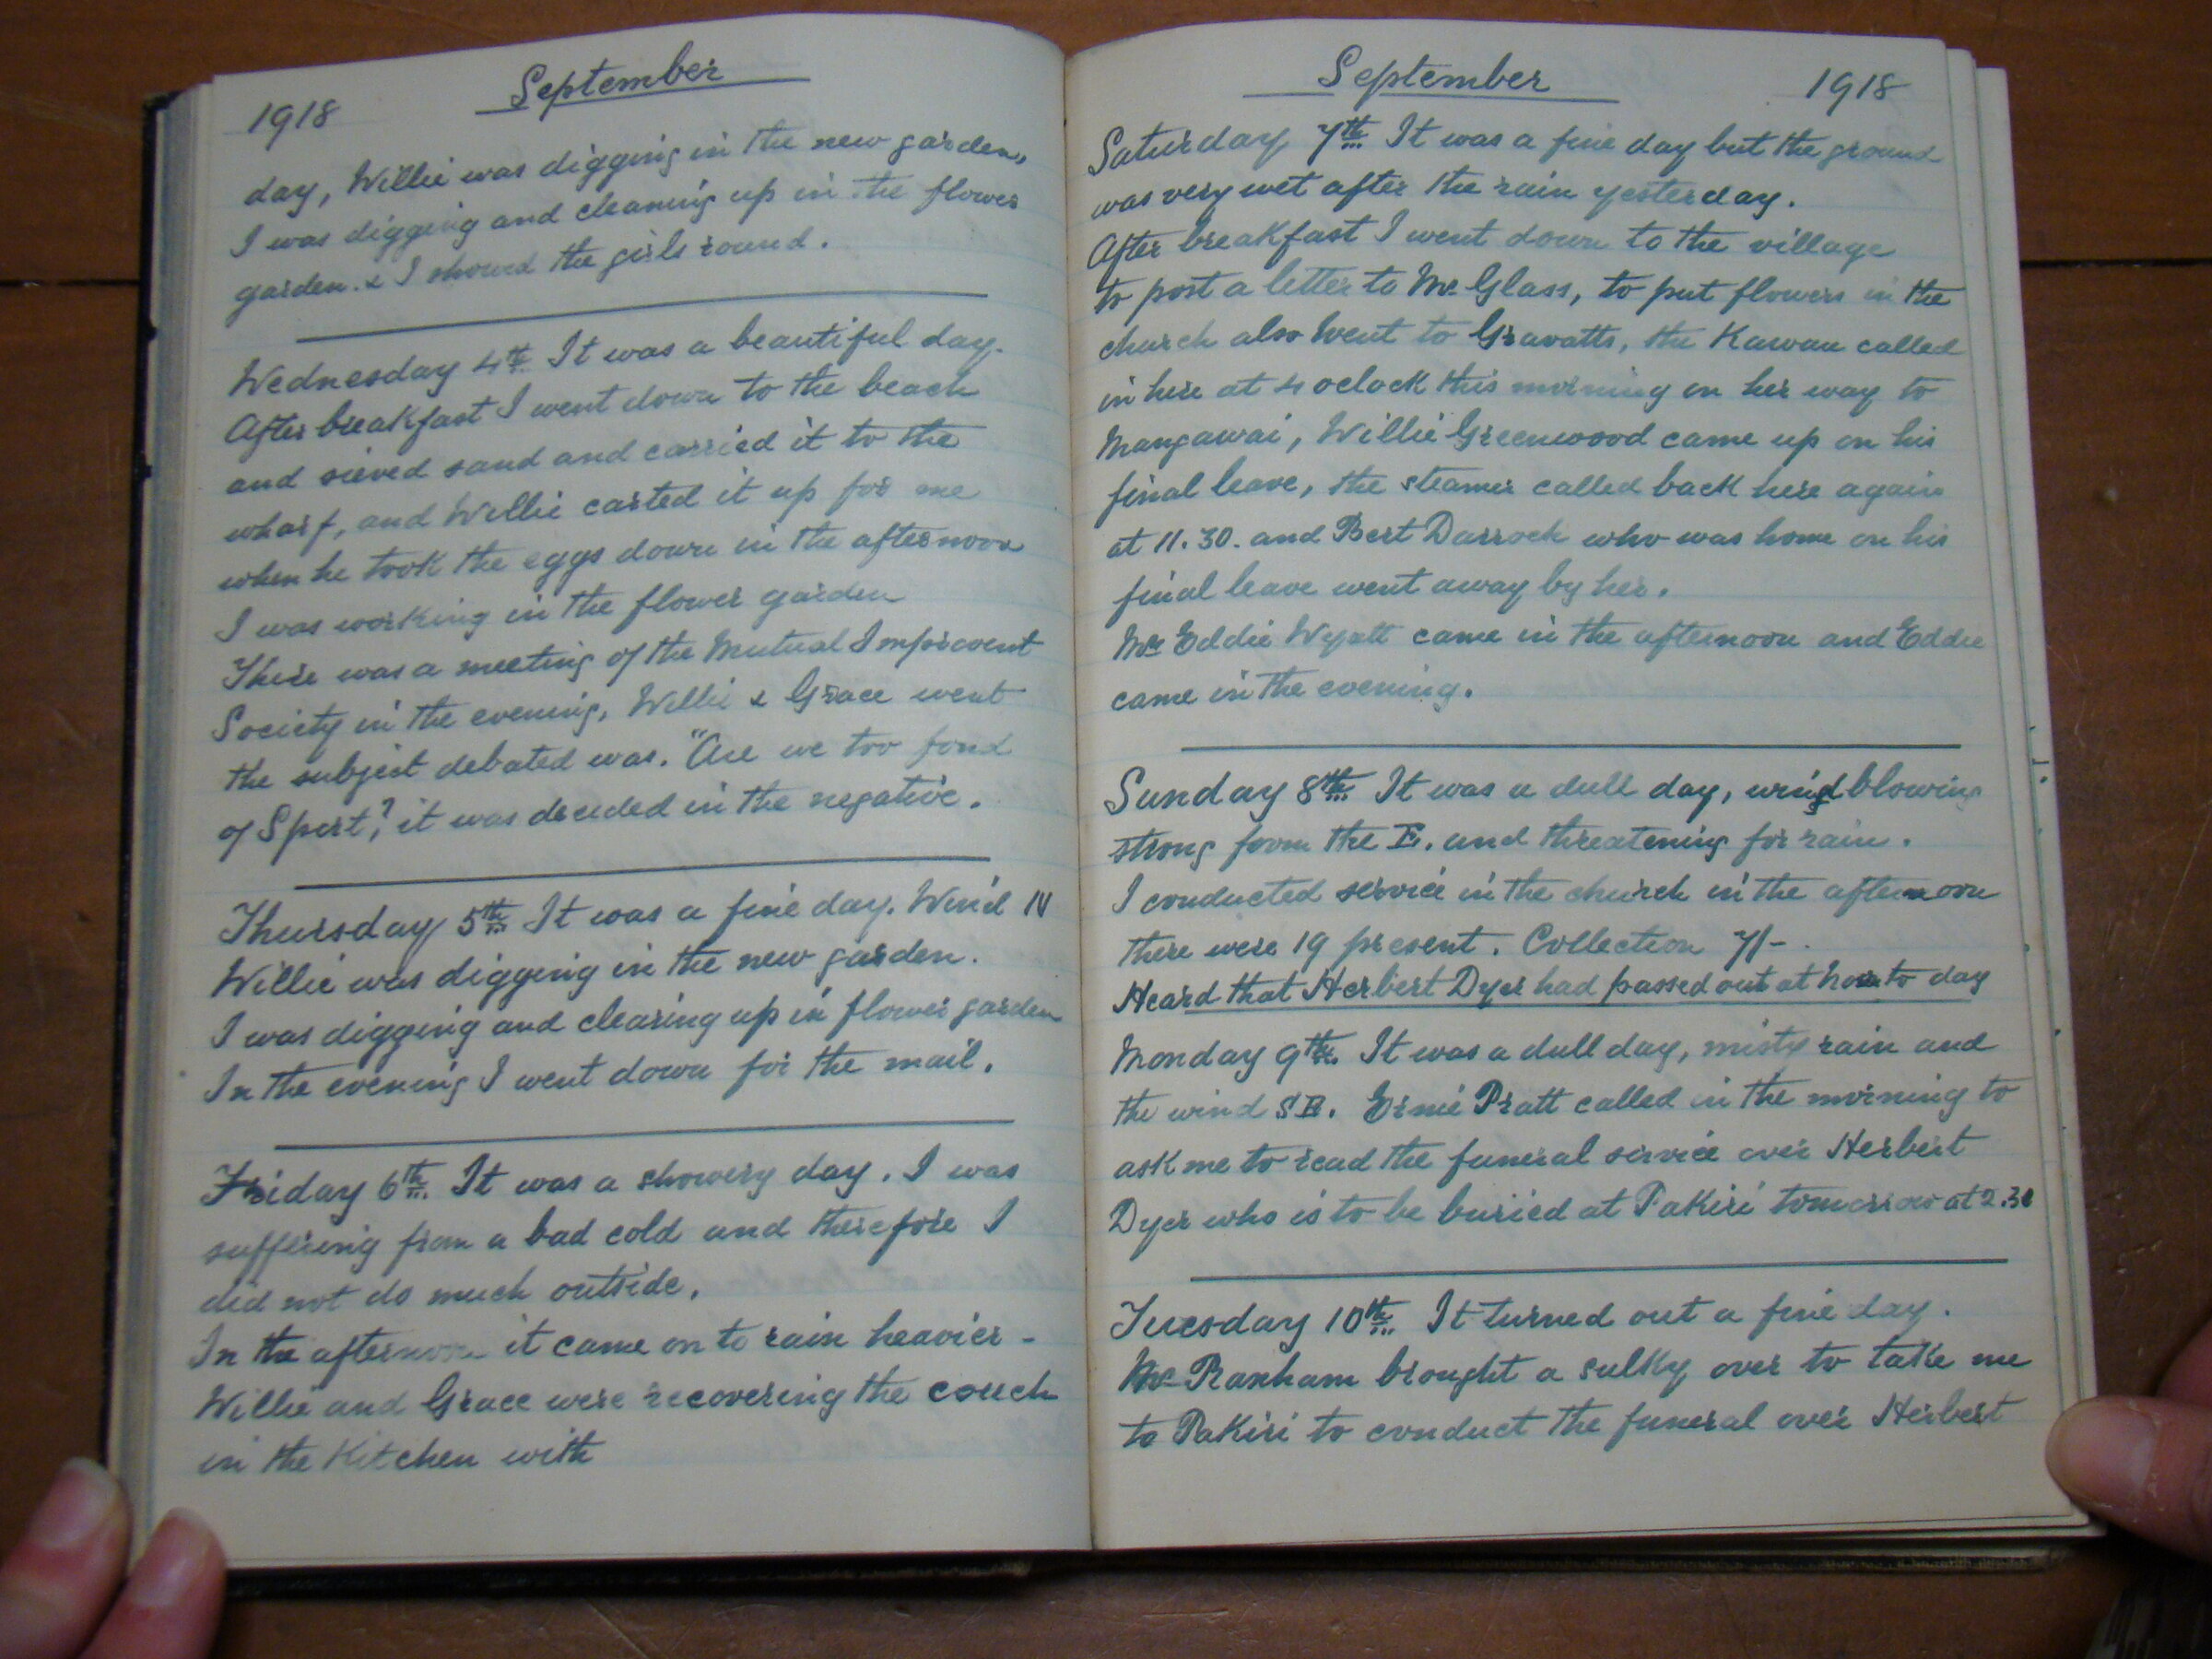 1918
September
day, Willie was digging in the new garden,
I was digging and cleaning up in the flower
garden. & I showed the girls round.
Wednesday 4th It was a beautiful day.
After breakfast I went down to the beach
and sieved sand and carried it to the
wharf, and Willie carted it up for me
when he took the eggs down in the afternoon
I was working in the flower garden
There was a meeting of the Mutual Improvent
Society in the evening, Willie & Grace went
the subject debated was. "Are we too fond
of Sport,? it was decided in the negative.
Thursday 5th It was a fine day. Wind N
Willie was digging in the new garden.
I was digging and clearing up in flower garden
In the evening I went down for the mail.
Friday 6th It was a showery day. I was
suffering from a bad cold and therefore I
did not do much outside.
In the afternoon it came on to rain heavier -
Willie and Grace were recovering the couch
in the Kitchen with
September
1918
Saturday 7th It was a fine day but the ground
was very wet after the rain yesterday.
After breakfast I went down to the village
to post a letter to Mr Glass, to put flowers in the
church also went to Gravatts, the Kawau called
in here at 4 oclock this morning on her way to
Mangawai, Willie Greenwood came up on his
final leave, the steamer called back here again
at 11.30. and Bert Darroch who was home on his
final leave went away by her.
Eddie Wyatt came in the afternoon and Eddie
came in the evening.
Sunday 8th It was a dull day, wind blowing
strong from the E. and threatening for rain.
I conducted service in the church in the afternoon
there were 19 present. Collection 7/-.
Heard that Herbert Dyer had passed out at to day
Monday 9th. It was a dull day, misty rain and
the wind SE. Ernie Pratt called in the morning to
ask me to read the funeral service over Herbert
Dyer who is to be buried at Pakiri tomorrow at 2.30
Tuesday 10th It turned out a fine day.
Mr brought a sulky over to take me
to Pakiri to conduct the funeral over Herbert